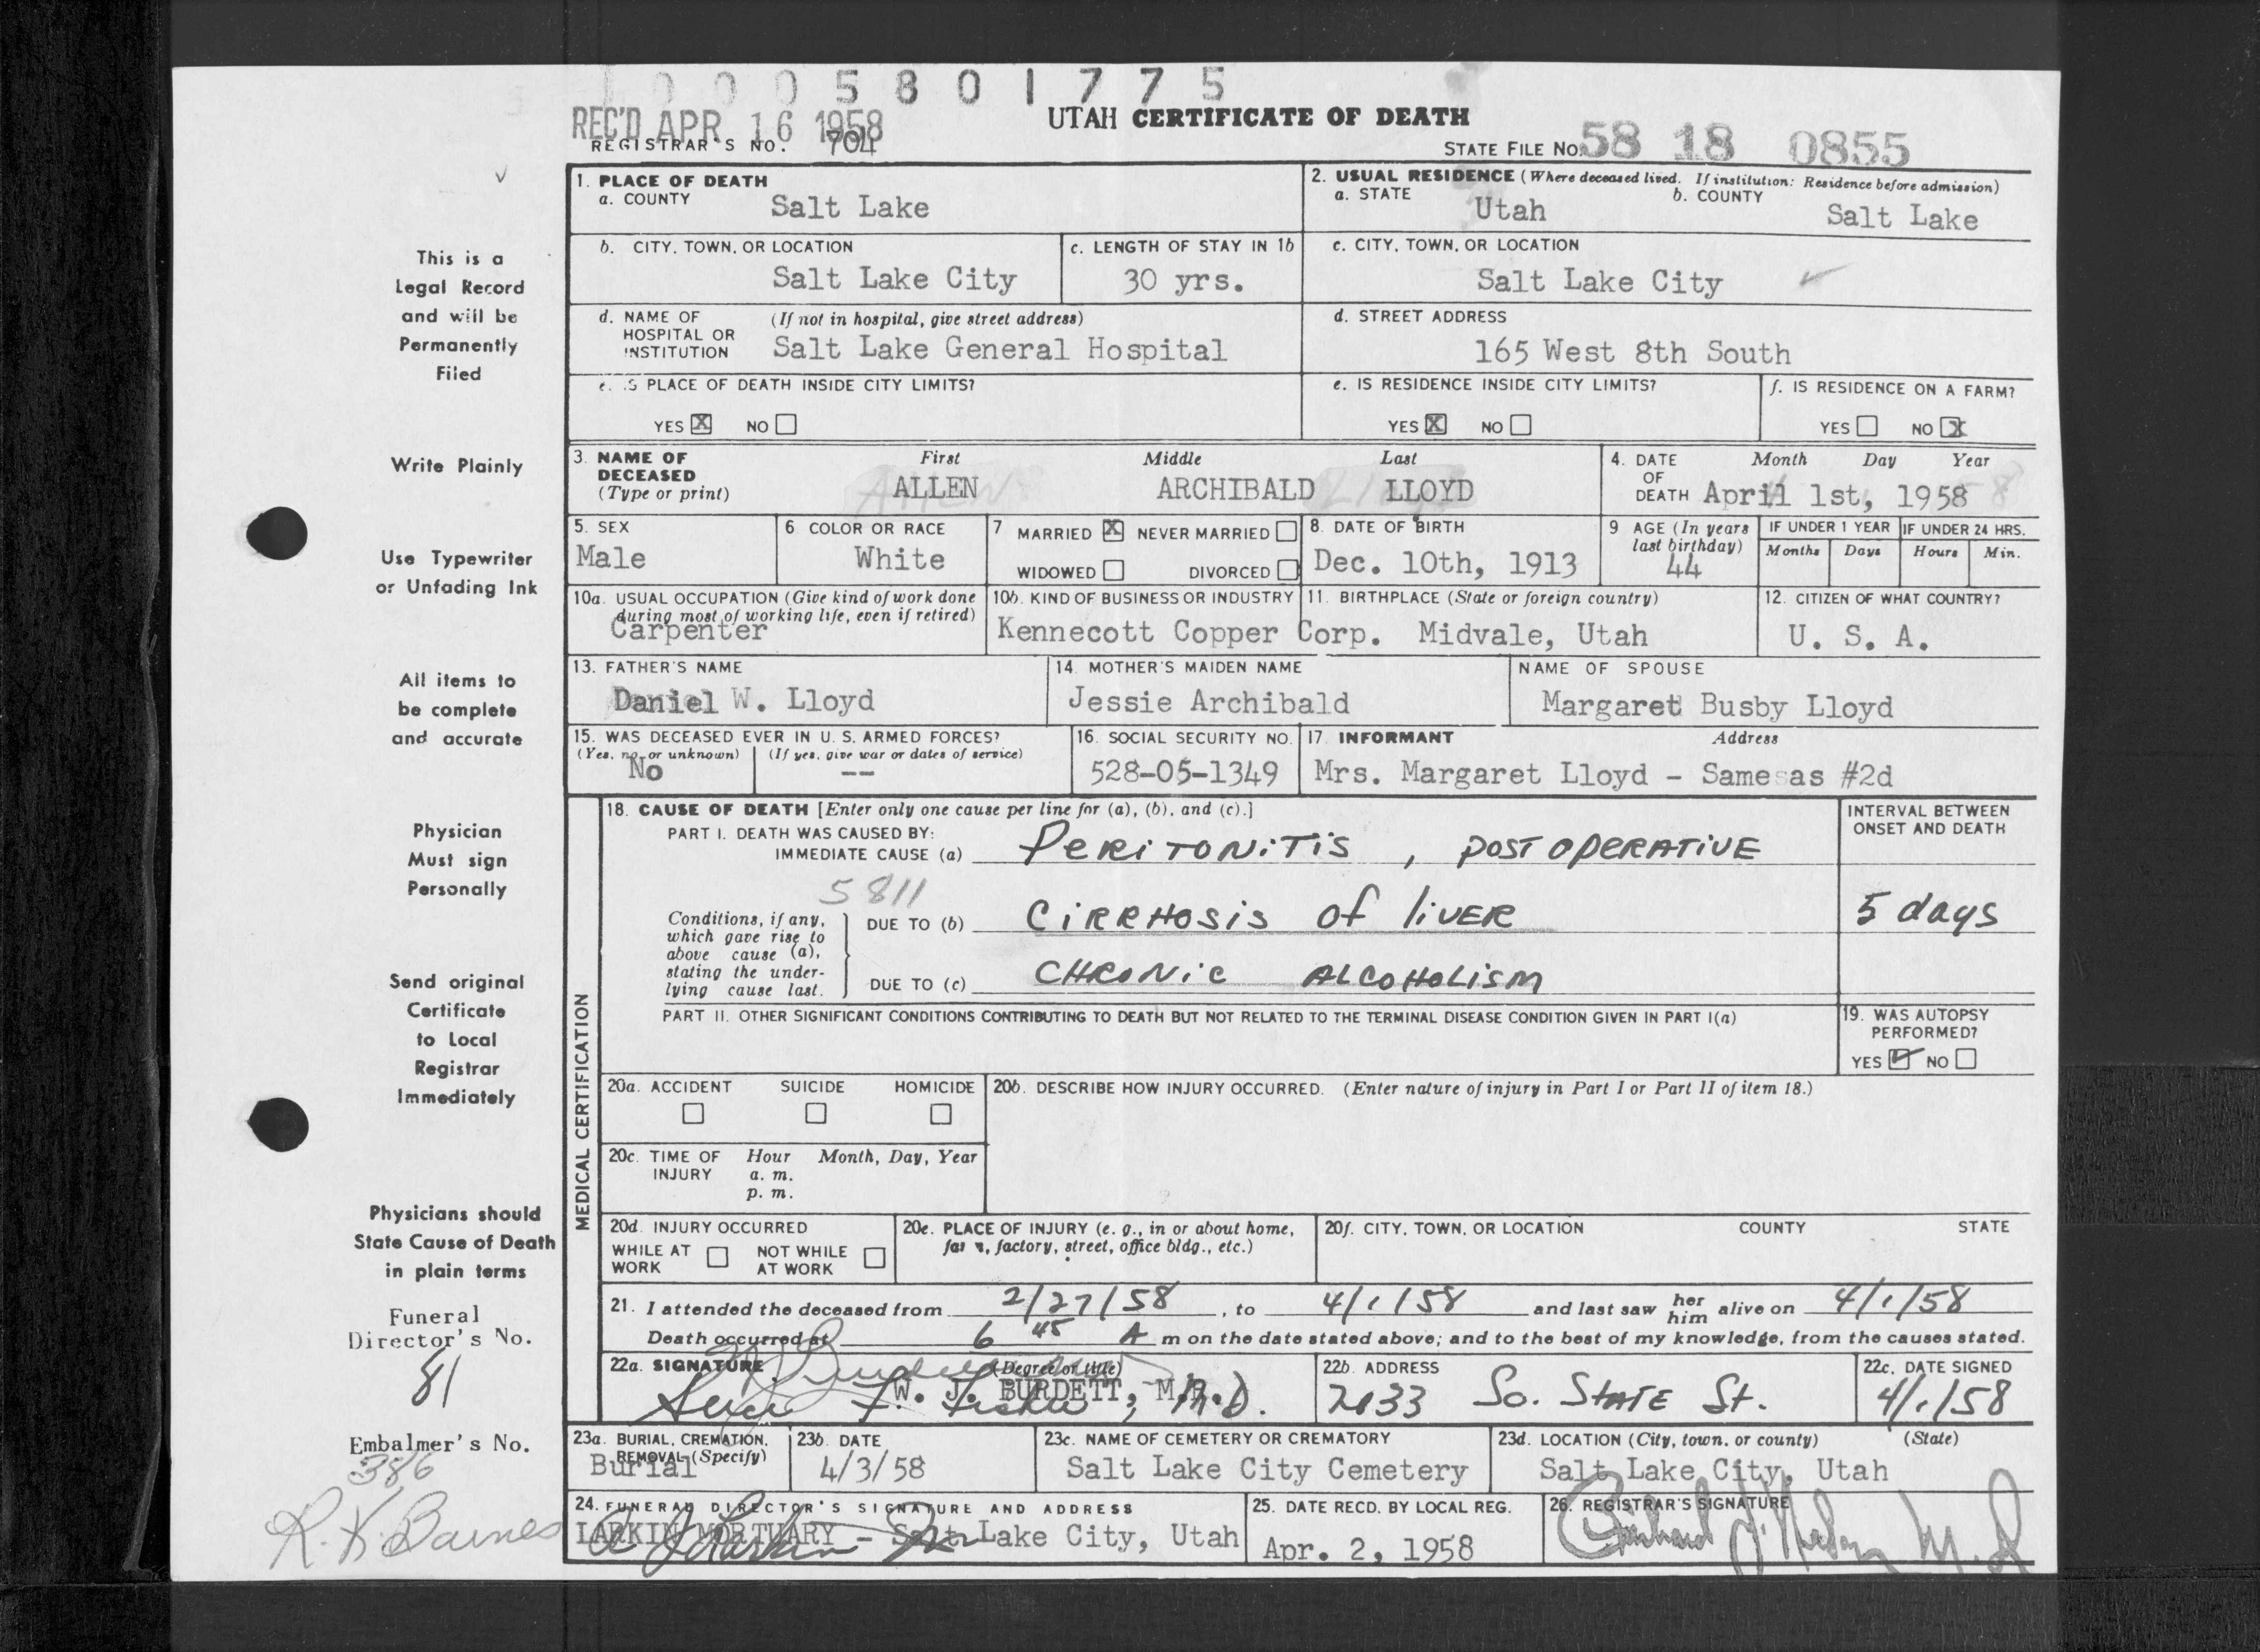 10005801775
REC'D APR 16 1958
UTAH CERTIFICATE OF DEATH
REGISTRAR'S NO. 704
STATE FILE No. 58 18 0855
This is a
Legal Record
and will be
Permanently
Filed
Write Plainly
Use Typewriter
or Unfading Ink
All items to
be complete
and accurate
Physician
Must sign
Personally
Send original
Certificate
to Local
Registrar
Immediately
Physicians should
State Cause of Death
in plain terms
Funeral
Director's No.
81
Embalmer's No.
386
R. K. Barnes
1. PLACE OF DEATH
a. COUNTY Salt Lake
2. USUAL RESIDENCE (Where deceased lived. If institution: Residence before admission)
a. STATE Utah b. COUNTY Salt Lake
b. CITY, TOWN, OR LOCATION Salt Lake City
c. LENGTH OF STAY IN 1b 30 yrs.
c. CITY, TOWN, OR LOCATION Salt Lake City
d. NAME OF HOSPITAL OR INSTITUTION (If not in hospital, give street address)
Salt Lake General Hospital
d. STREET ADDRESS
165 West 8th South
e. IS PLACE OF DEATH INSIDE CITY LIMITS?
YES X NO
e. IS RESIDENCE INSIDE CITY LIMITS?
YES X NO
f. IS RESIDENCE ON A FARM?
YES NO X
3. NAME OF DECEASED (Type or print) First Middle Last
ALLEN ARCHIBALD LLOYD
4. DATE OF DEATH Month Day Year
April 1st, 1958
5. SEX Male
6 COLOR OR RACE White
7 MARRIED X NEVER MARRIED
WIDOWED DIVORCED
8. DATE OF BIRTH Dec. 10th, 1913
9 AGE (In years last birthday) 44
IF UNDER 1 YEAR Months Days
IF UNDER 24 HRS. Hours Min.
10a. USUAL OCCUPATION (Give kind of work done during most of working life, even if retired)
Carpenter
10b. KIND OF BUSINESS OR INDUSTRY
Kennecott Copper Corp.
11. BIRTHPLACE (State or foreign country)
Midvale, Utah
12. CITIZEN OF WHAT COUNTRY?
U. S. A.
13. FATHER'S NAME
Daniel W. Lloyd
14. MOTHER'S MAIDEN NAME
Jessie Archibald
NAME OF SPOUSE
Margaret Busby Lloyd
15. WAS DECEASED EVER IN U. S. ARMED FORCES?
(Yes, no, or unknown) (If yes, give war or dates of service)
No --
16. SOCIAL SECURITY NO.
528-05-1349
17. INFORMANT Address
Mrs. Margaret Lloyd - Same as #2d
MEDICAL CERTIFICATION
18. CAUSE OF DEATH [Enter only one cause per line for (a), (b), and (c).]
INTERVAL BETWEEN ONSET AND DEATH
PART I. DEATH WAS CAUSED BY:
IMMEDIATE CAUSE (a) PERITONITIS, POSTOPERATIVE
5811
Conditions, if any, which gave rise to above cause (a), stating the underlying cause last.
DUE TO (b) CIRRHOSIS Of liVER 5 days
DUE TO (c) CHRONIC ALCOHOLISM
PART II. OTHER SIGNIFICANT CONDITIONS CONTRIBUTING TO DEATH BUT NOT RELATED TO THE TERMINAL DISEASE CONDITION GIVEN IN PART I(a)
19. WAS AUTOPSY PERFORMED?
YES ✓ NO
20a. ACCIDENT SUICIDE HOMICIDE
20b. DESCRIBE HOW INJURY OCCURRED. (Enter nature of injury in Part I or Part II of item 18.)
20c. TIME OF INJURY Hour Month, Day, Year
a. m.
p. m.
20d. INJURY OCCURRED
WHILE AT WORK NOT WHILE AT WORK
20e. PLACE OF INJURY (e. g., in or about home, farm, factory, street, office bldg., etc.)
20f. CITY, TOWN, OR LOCATION COUNTY STATE
21. I attended the deceased from 2/27/58, to 4/1/58 and last saw her him alive on 4/1/58
Death occurred at 6 45 A m on the date stated above; and to the best of my knowledge, from the causes stated.
22a. SIGNATURE (Degree or title)
W. J. BURDETT, M.D.
22b. ADDRESS
2033 So. STATE St.
22c. DATE SIGNED
4/1/58
23a. BURIAL, CREMATION, REMOVAL (Specify)
Burial
23b. DATE
4/3/58
23c. NAME OF CEMETERY OR CREMATORY
Salt Lake City Cemetery
23d. LOCATION (City, town, or county) (State)
Salt Lake City, Utah
24. FUNERAL DIRECTOR'S SIGNATURE AND ADDRESS
LARKIN MORTUARY - Salt Lake City, Utah
25. DATE RECD. BY LOCAL REG.
Apr. 2, 1958
26. REGISTRAR'S SIGNATURE